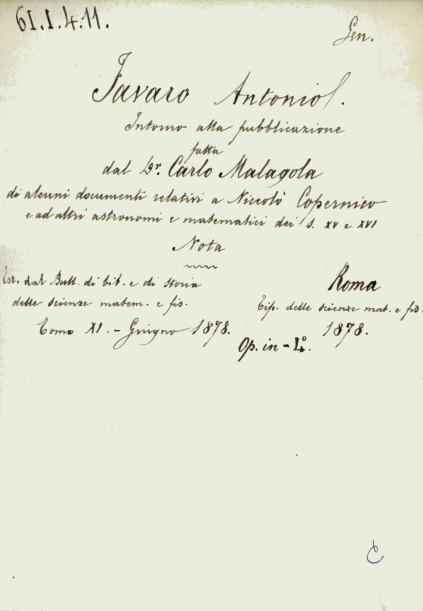 61.1.4.11.
Gen.
Favaro Antonio.
Intorno alla pubblicazione
fatta
dal Dr. Carlo Malagola
di alcuni documenti relativi a Niccolò Copernico
e ad altri astronomi e matematici dei s. XV e XVI
Nota
Est. dal Bull. di bib. e di storia
delle scienze matem. e fis.
Tomo XI. - Giugno 1878.
Roma
Tip. delle scienze mat. e fis.
1878.
Op. in-4o.
C